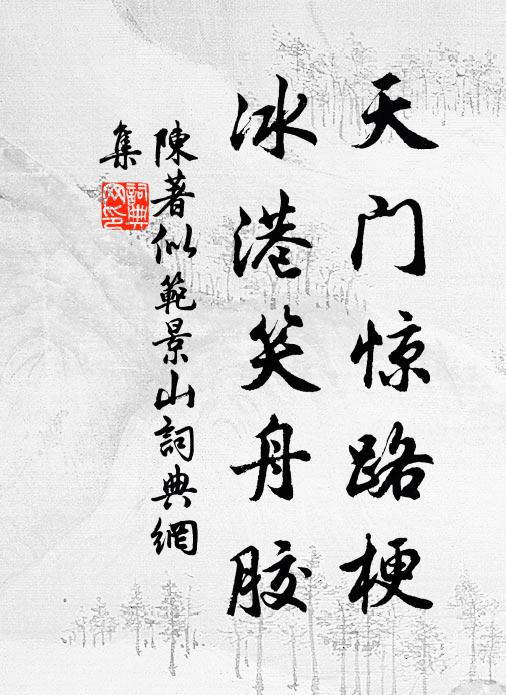 天门惊路梗
冰港笑舟胶
陳著似範景山詞典網
集
詞典網印